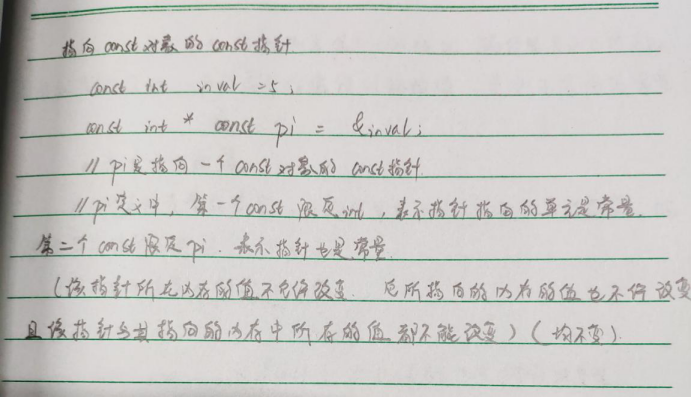 指向 const 对象的 const 指针
const int inval = 5;
const int * const pi = &inval;
// pi是指向一个const对象的const指针
// pi定义中，第一个const限定int，表示指针指向的单元是常量.
第二个const限定pi.表示指针也是常量
(该指针所在内存的值不允许改变. 它所指向的内存的值也不许改变
且该指针与其指向的内存中所存的值都不能改变)(均不变).